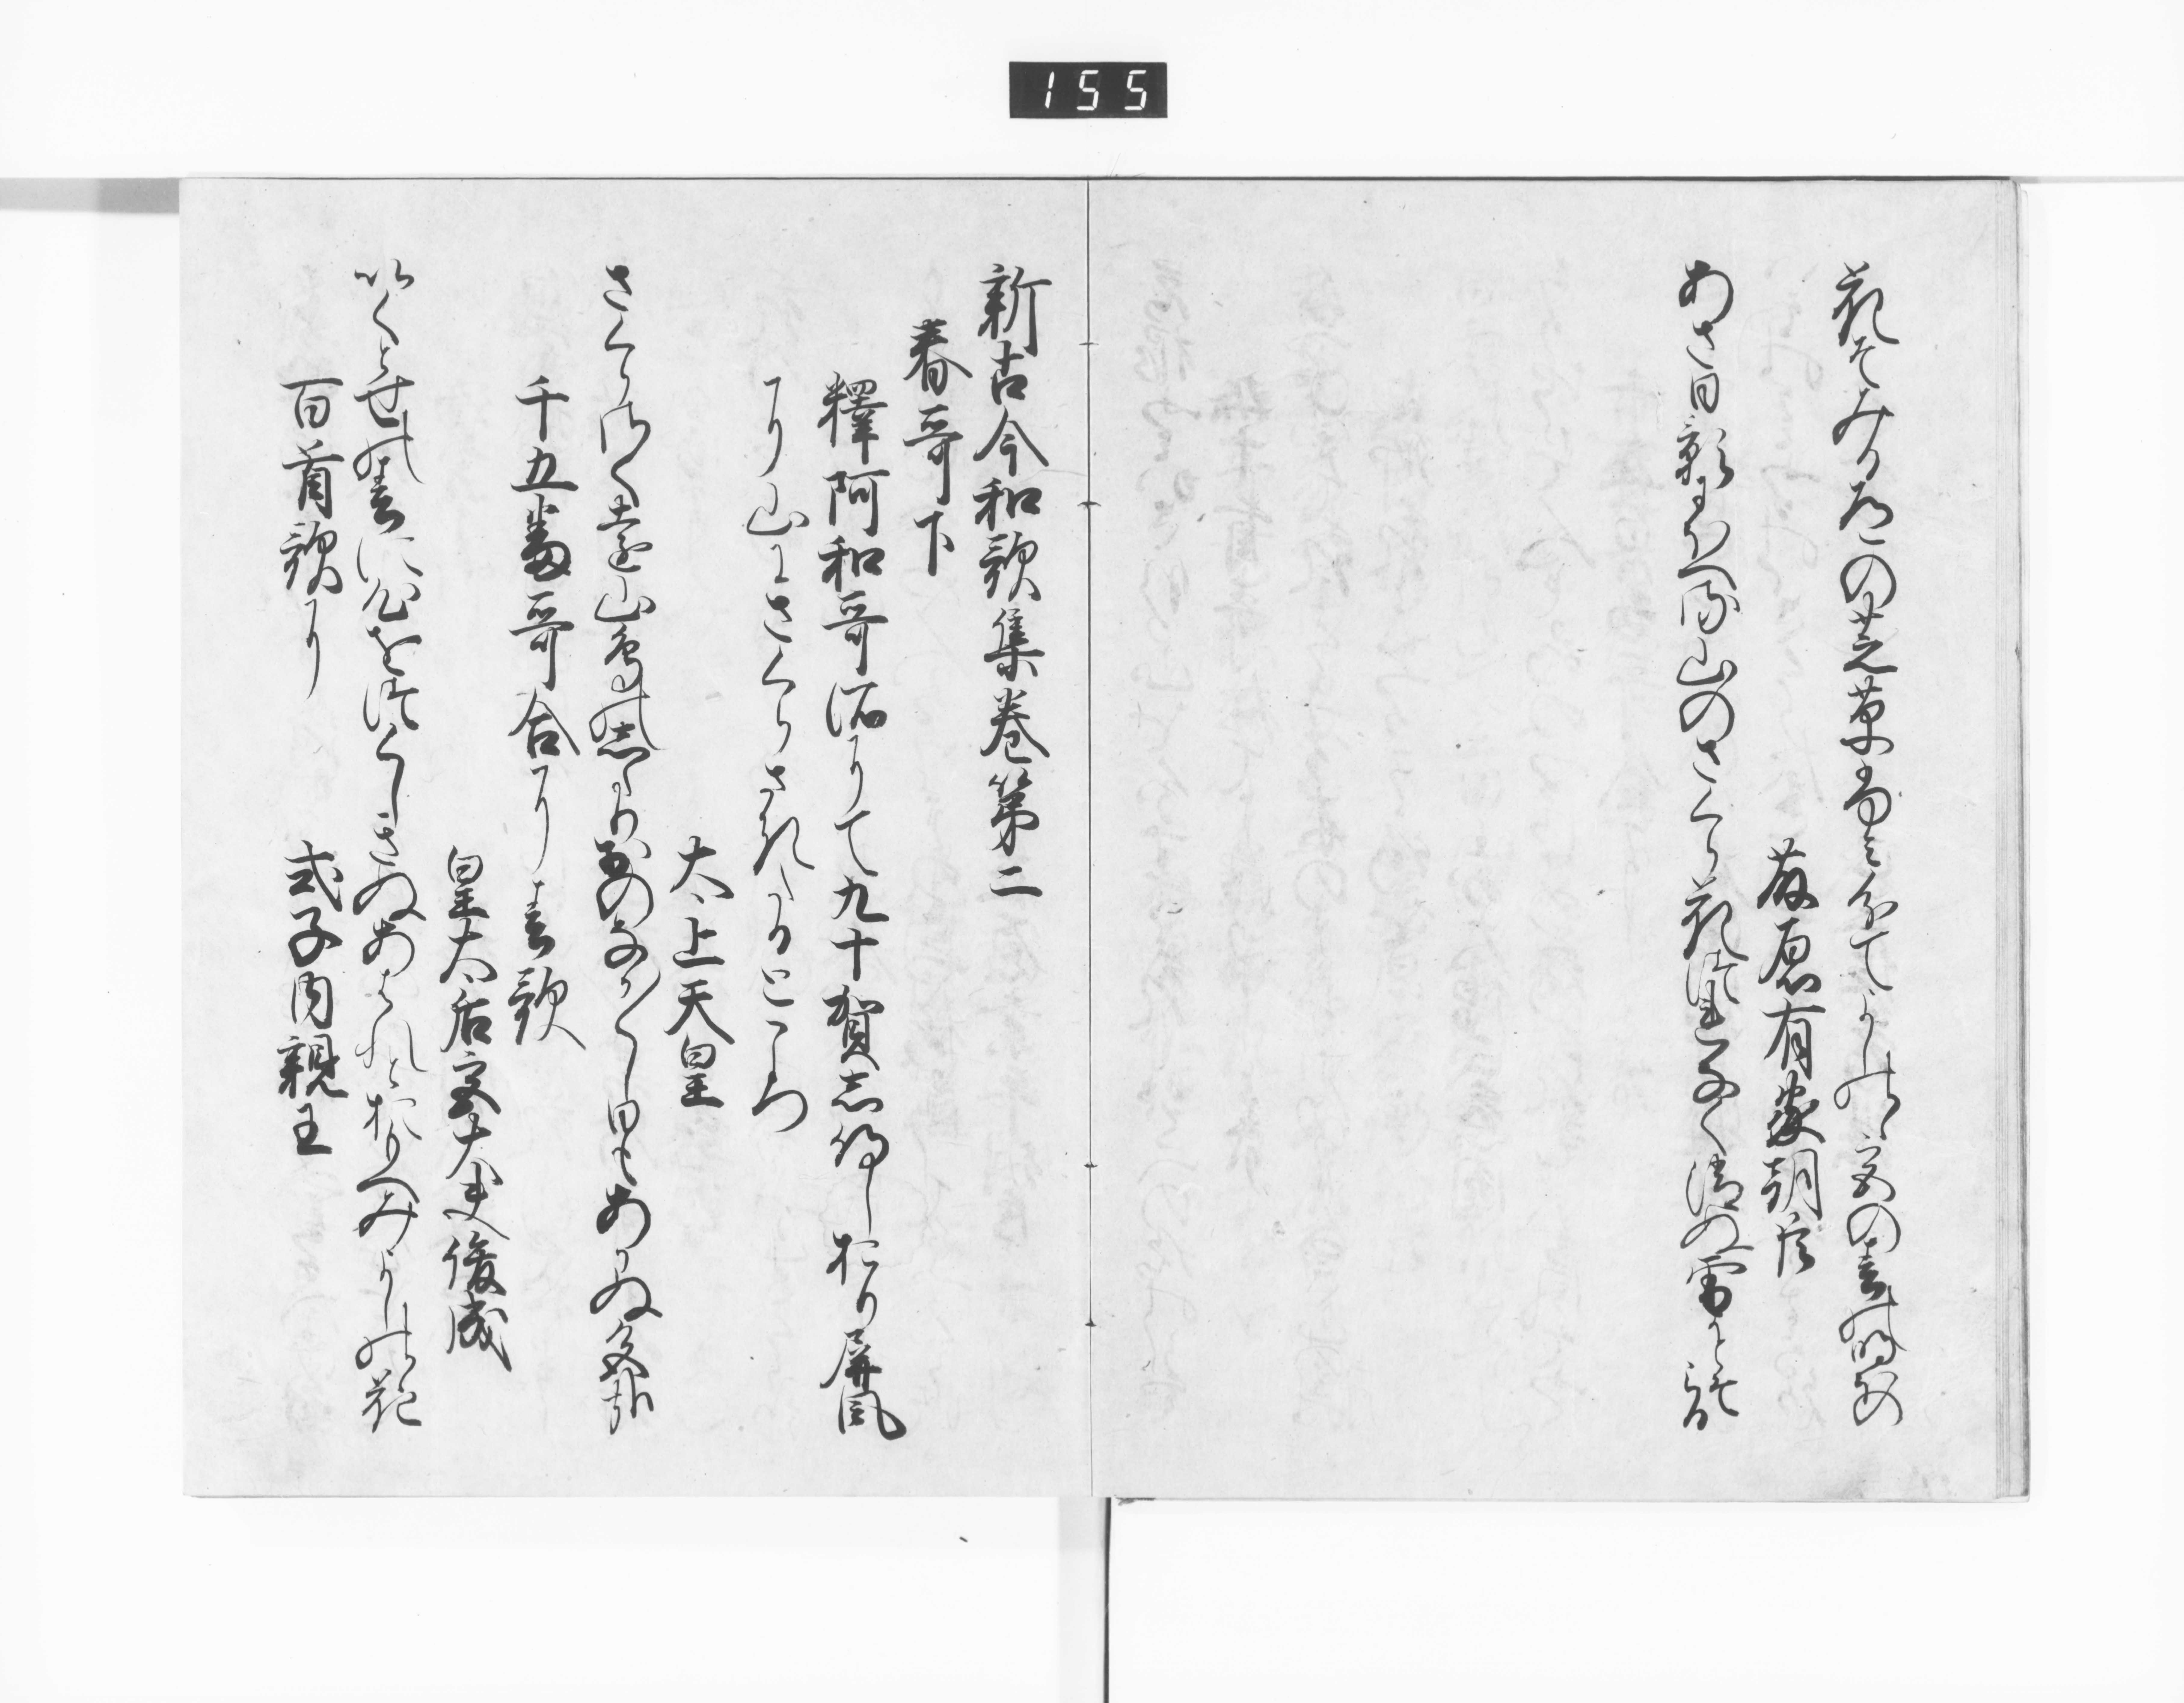 155
花そみる道の芝草ふみ分てよし野の宮の春の明ほの
藤原有家朝臣
あさ日影にほへる山のさくら花つれなくきえぬ雪かとそ見る
新古今和歌集巻第二
春哥下
釋阿和哥所にて九十賀し侍しおり屏風
に山にさくらさきたるところ
太上天皇
さくらさく遠山鳥のしたりおのなか〱し日もあかぬ色哉
千五百番哥合に春歌
皇太后宮大夫俊成
いくとせの春に心をつくしきぬあはれとおもへみよしのの花
百首歌に
式子内親王